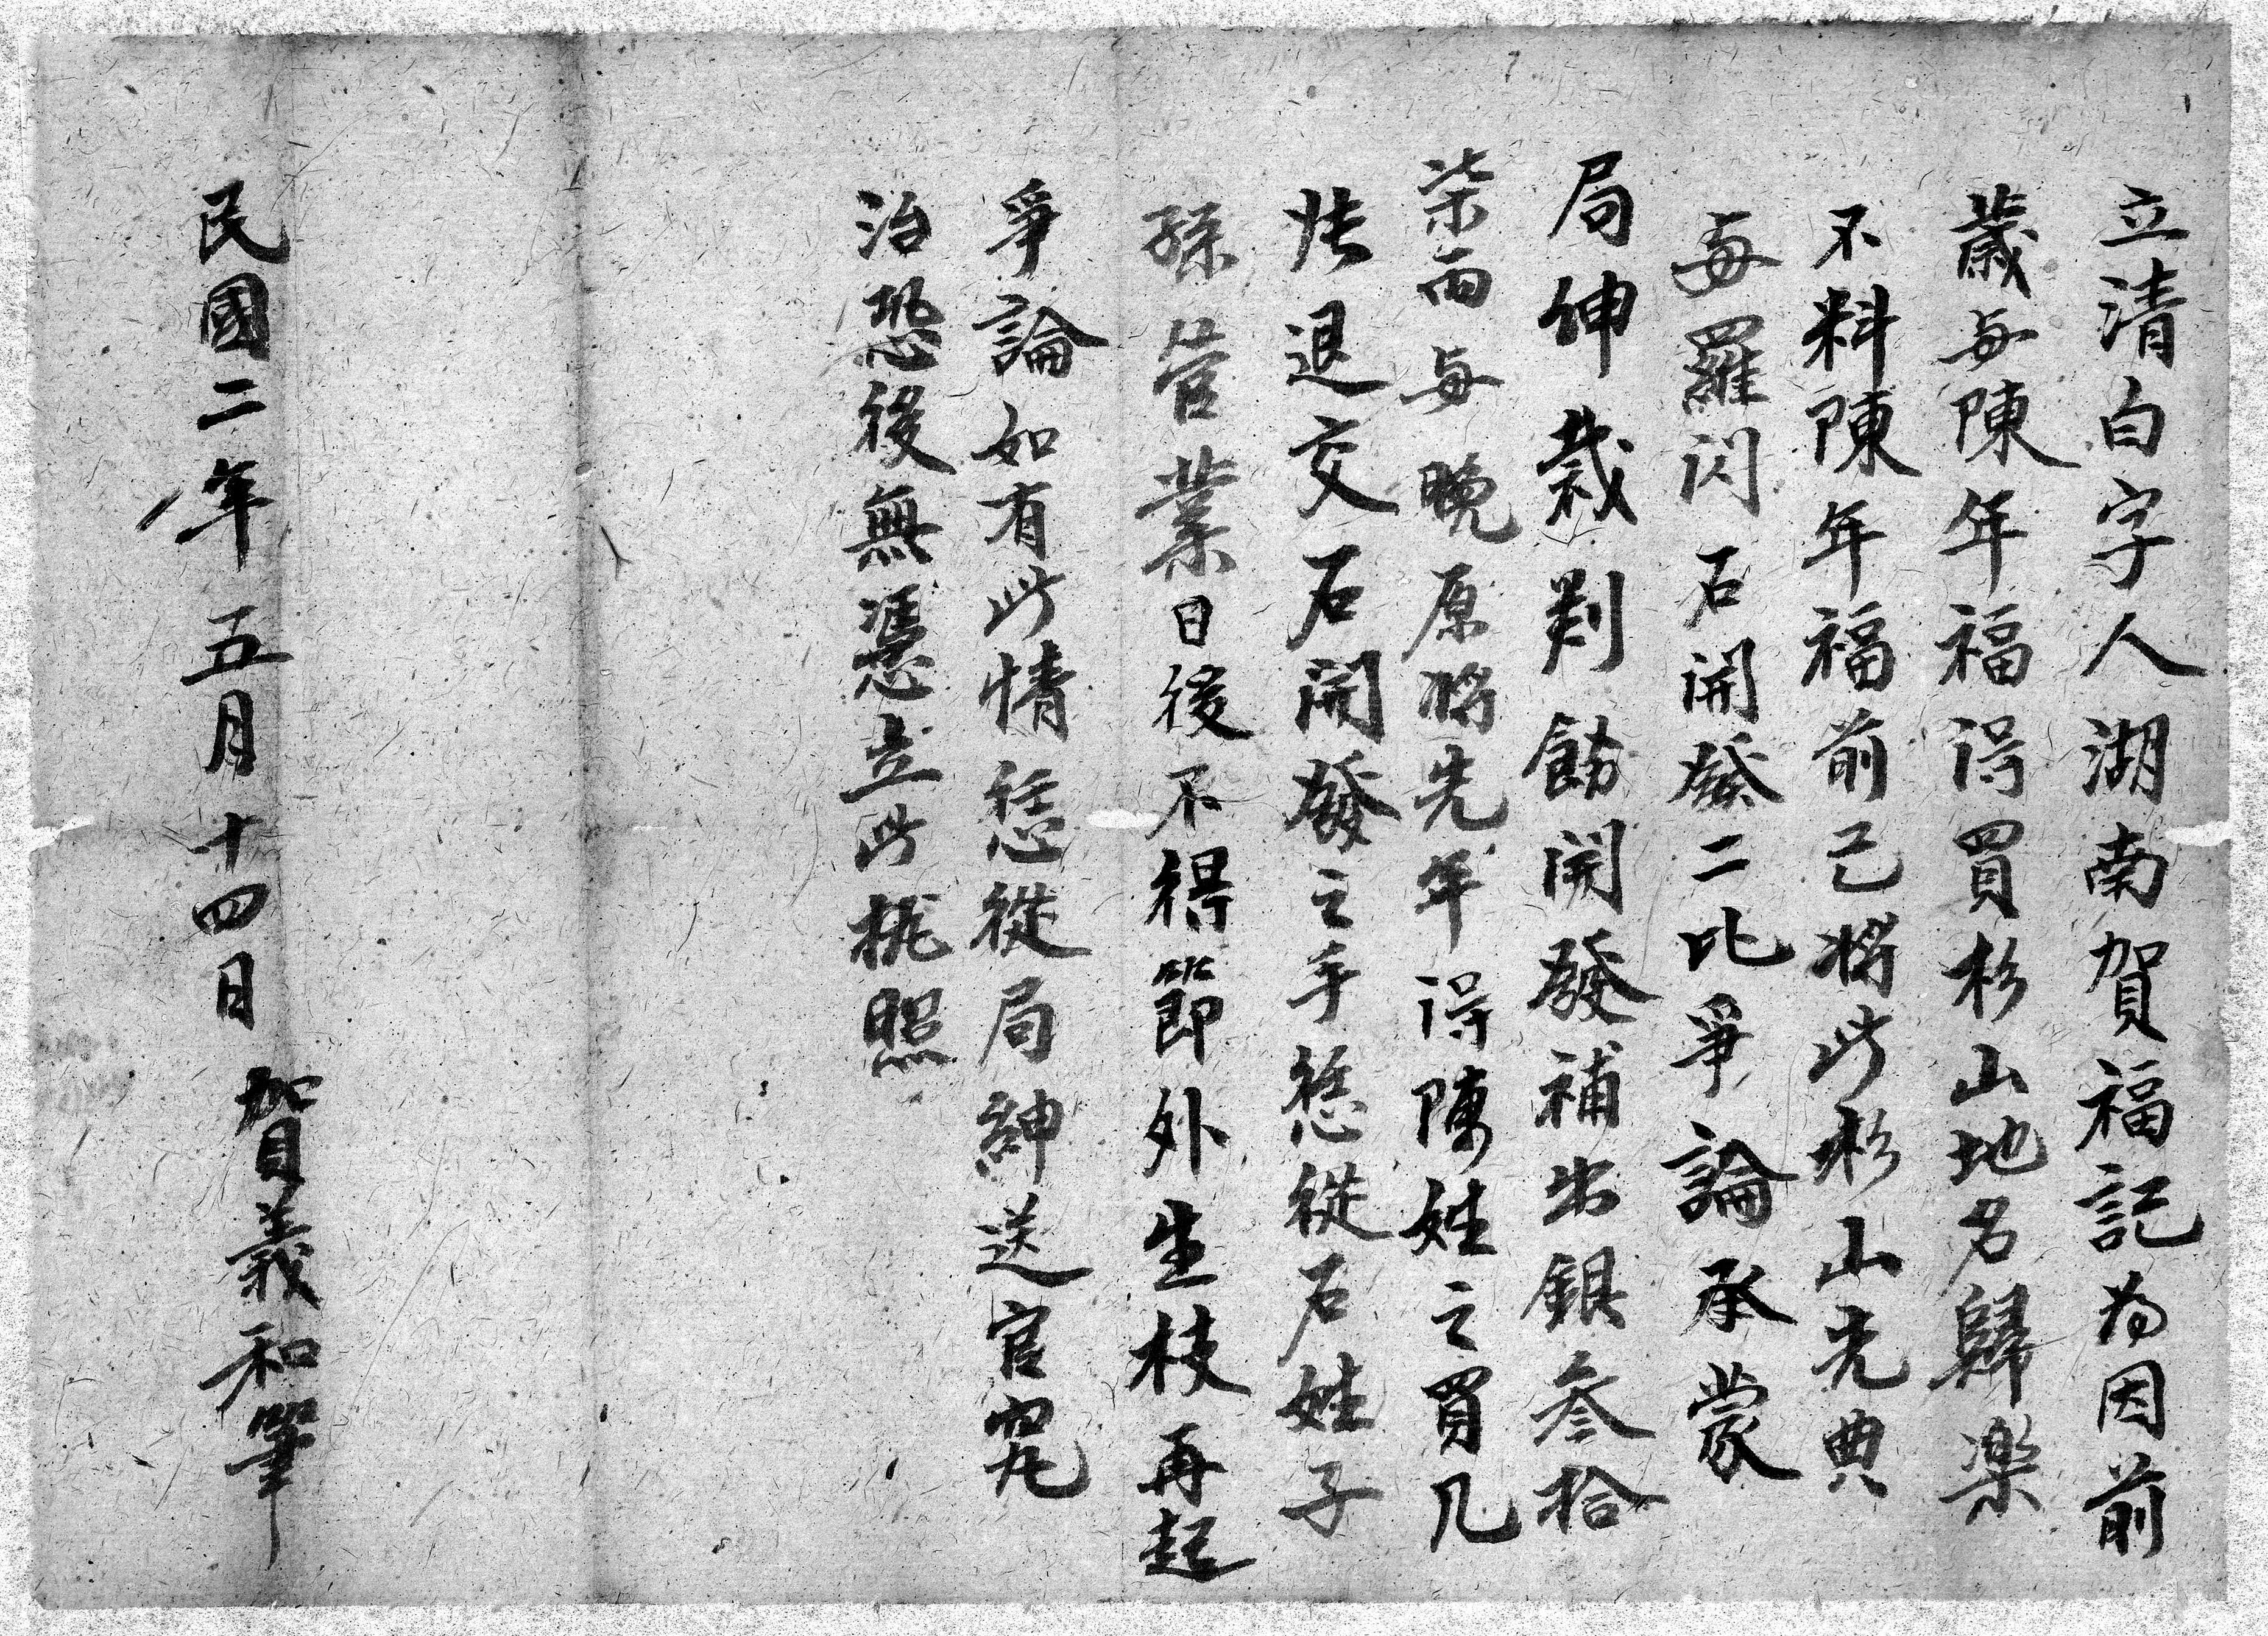 立清白字人湖南賀福記為因前
歲與陳年福得買杉山地名歸樂
不料陳年福前已將此杉山先典
與羅閃石開發二比爭論承蒙
局紳裁判飭開發補出銀叁拾
柒両與晚原將先年得陳姓之買凡
張退交石開發之手恁從石姓子
孫管業日後不得節外生枝再起
爭論如有此情恁從局紳送官究
治恐後無憑立此執照
民國二年五月十四日 賀義和筆